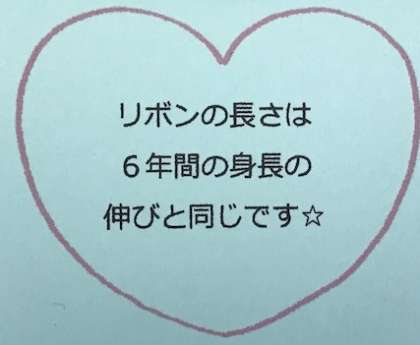 リボンの長さは
６年間の身長の
伸びと同じです☆